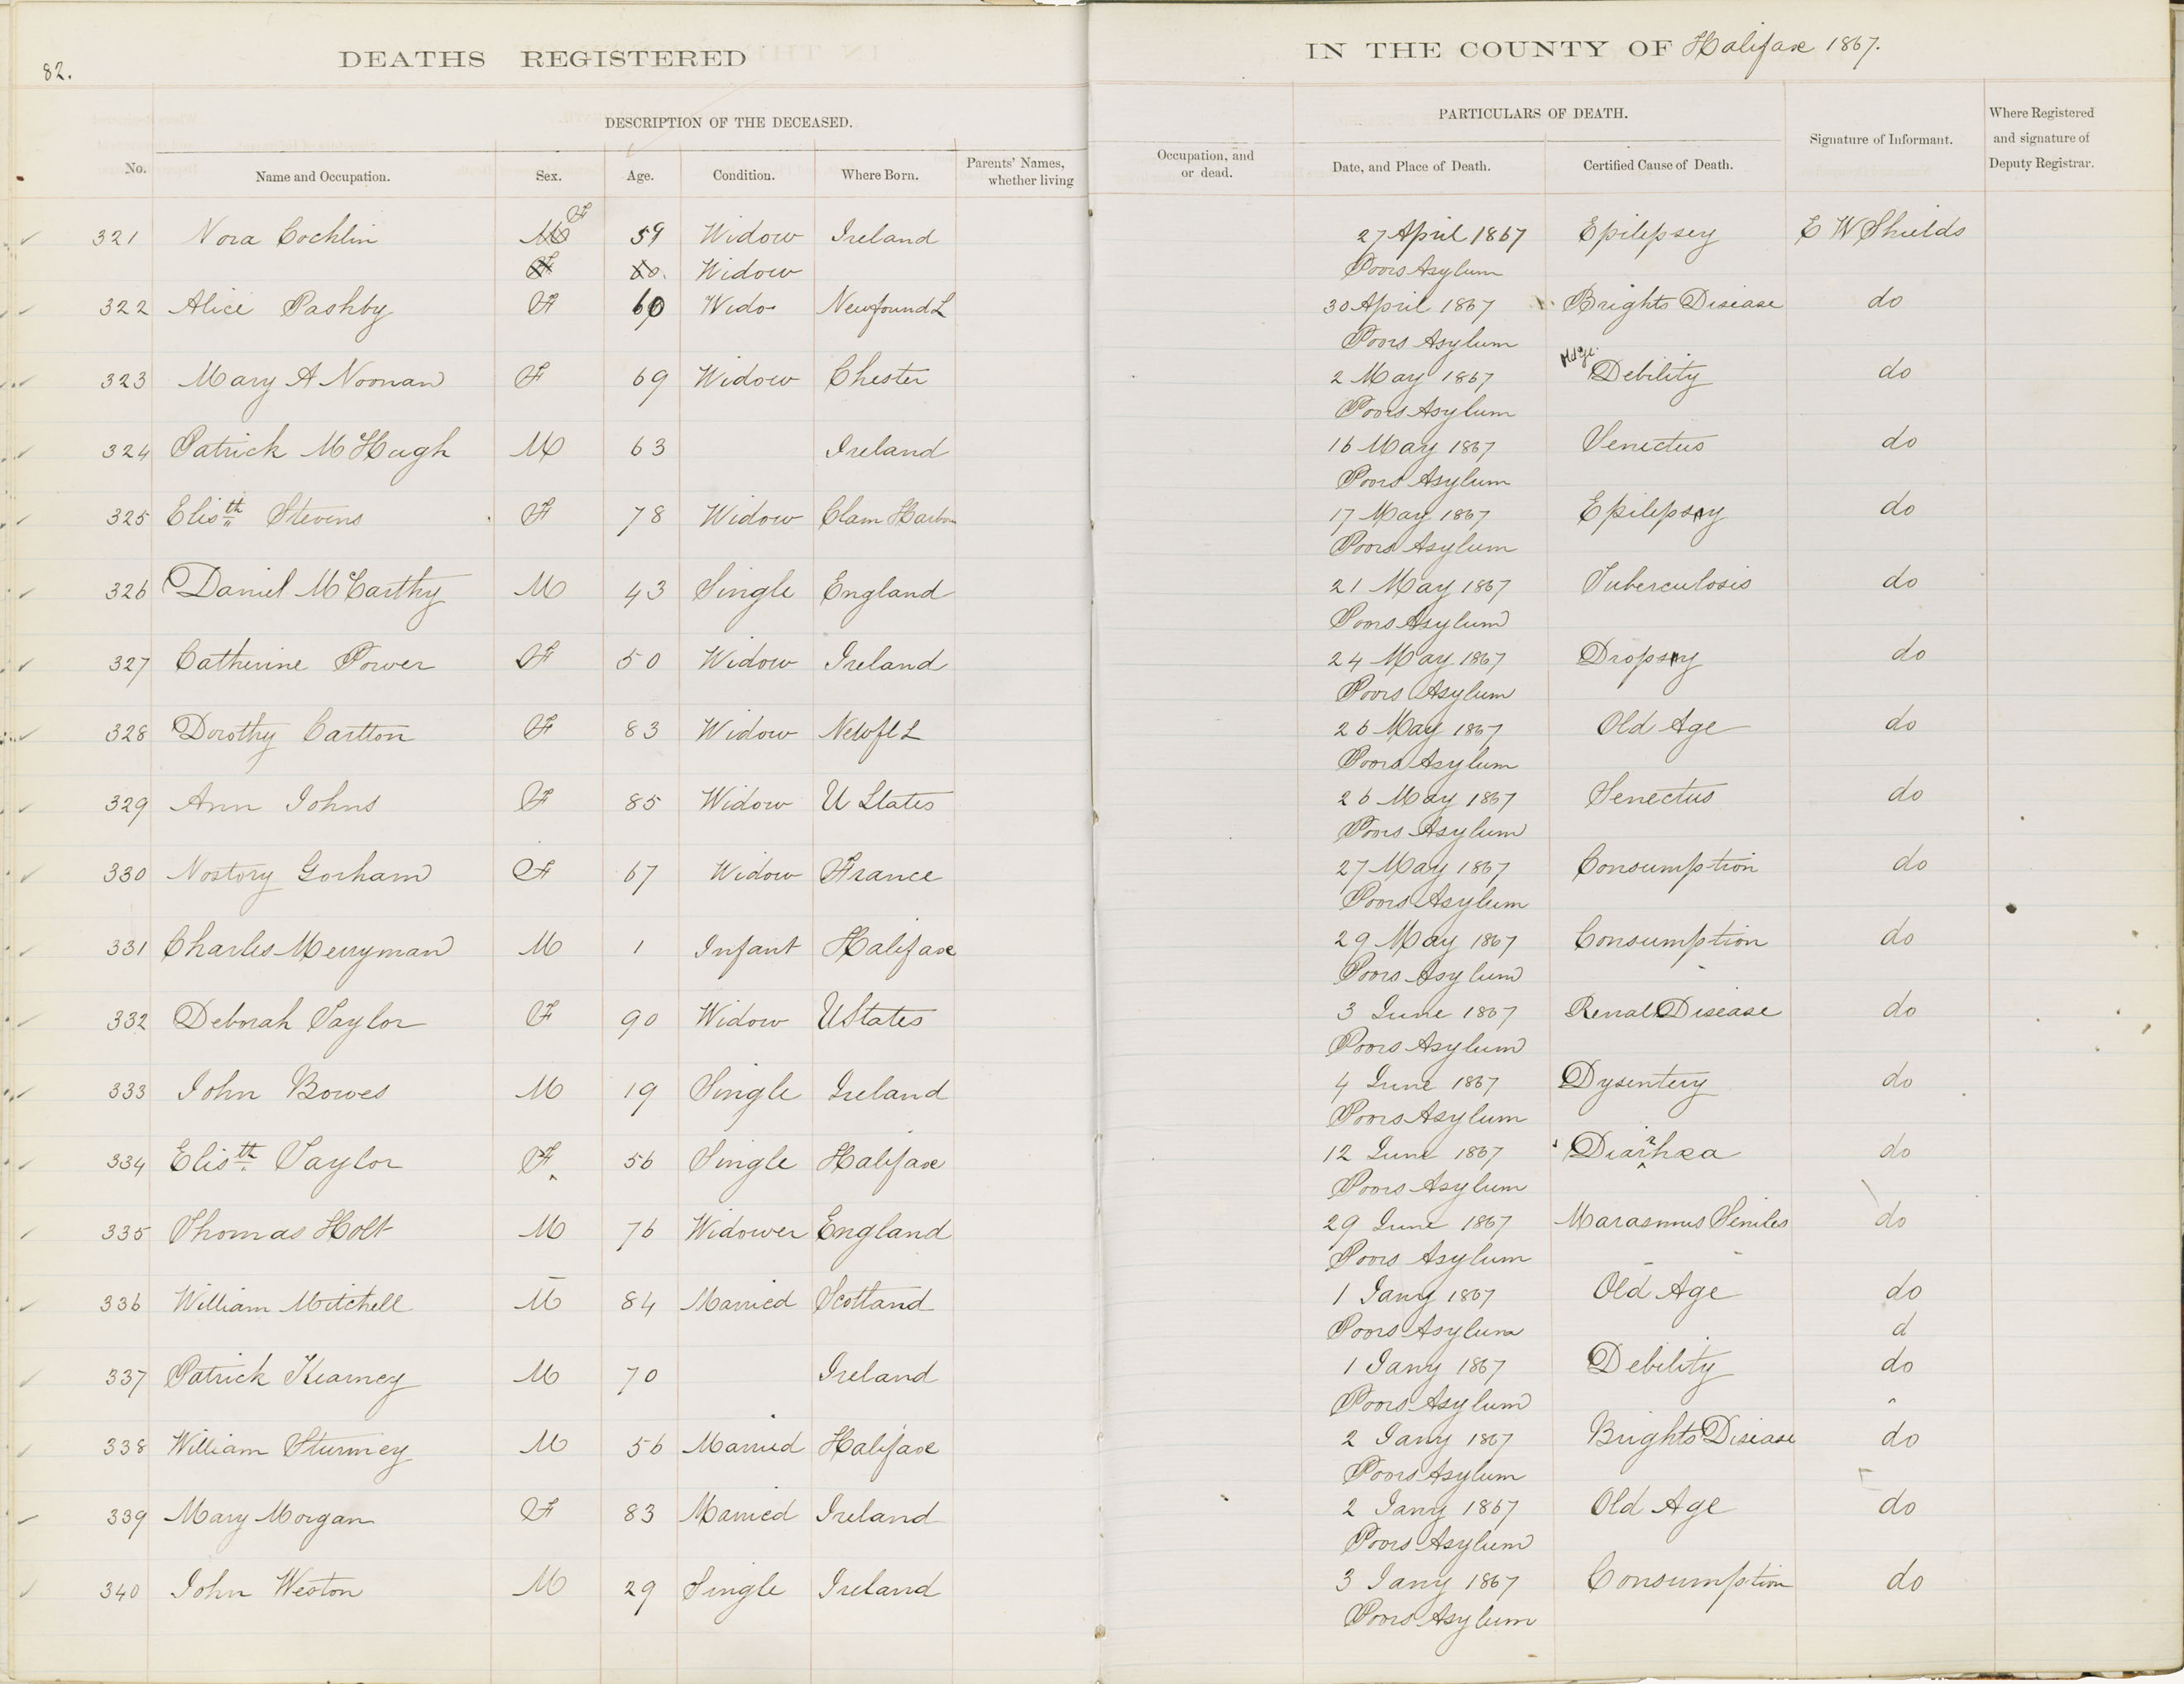 82.
DEATHS REGISTERED IN THE COUNTY OF Halifax 1867.
DESCRIPTION OF THE DECEASED. PARTICULARS OF DEATH. Signature of Informant. Where Registered and signature of Deputy Registrar.
No. Name and Occupation. Sex. Age. Condition. Where Born. Parents' Names, whether living Occupation, and or dead. Date, and Place of Death. Certified Cause of Death.
321 Nora Cochlin M F 59 Widow Ireland 27 April 1867 Epilepsey E W Shields
F 60. Widow Poors Asylum
322 Alice Pashby F 60 Wido Newfound L 30 April 1867 Brights Disease do
Poors Asylum
323 Mary A Noonan F 69 Widow Chester 2 May 1867 Debility do
Poors Asylum
324 Patrick McHugh M 63 Ireland 16 May 1867 Senectus do
Poors Asylum
325 Elisth Stevens F 78 Widow Clam Harbor 17 May 1867 Epilepsy do
Poors Asylum
326 Daniel McCarthy M 43 Single England 21 May 1867 Tuberculosis do
Poors Asylum
327 Catherine Power F 50 Widow Ireland 24 May 1867 Dropsy do
Poors Asylum
328 Dorothy Cartton F 83 Widow Newfl L 26 May 1867 Old Age do
Poors Asylum
329 Ann Johns F 85 Widow U States 26 May 1867 Senectus do
Poors Asylum
330 Nostory Gorham F 67 Widow France 27 May 1867 Consumption do
Poors Asylum
331 Charles Merryman M 1 Infant Halifax 29 May 1867 Consumption do
Poors Asylum
332 Deborah Taylor F 90 Widow UStates 3 June 1867 Renal Disease do
Poors Asylum
333 John Bowes M 19 Single Ireland 4 June 1867 Dysentery do
Poors Asylum
334 Elisth Taylor F 56 Single Halifax 12 June 1867 Diarrhea do
Poors Asylum
335 Thomas Holt M 76 Widower England 29 June 1867 Marasmus Seniles do
Poors Asylum
336 William Mitchell M 84 Married Scotland 1 Jany 1867 Old Age do
Poors Asylum d
337 Patrick Kearney M 70 Ireland 1 Jany 1867 Debility do
Poors Asylum
338 William Sturmey M 56 Married Halifax 2 Jany 1867 Brights Disease do
Poors Asylum
339 Mary Morgan F 83 Married Ireland 2 Jany 1867 Old Age do
Poors Asylum
340 John Weston M 29 Single Ireland 3 Jany 1867 Consumption do
Poors Asylum